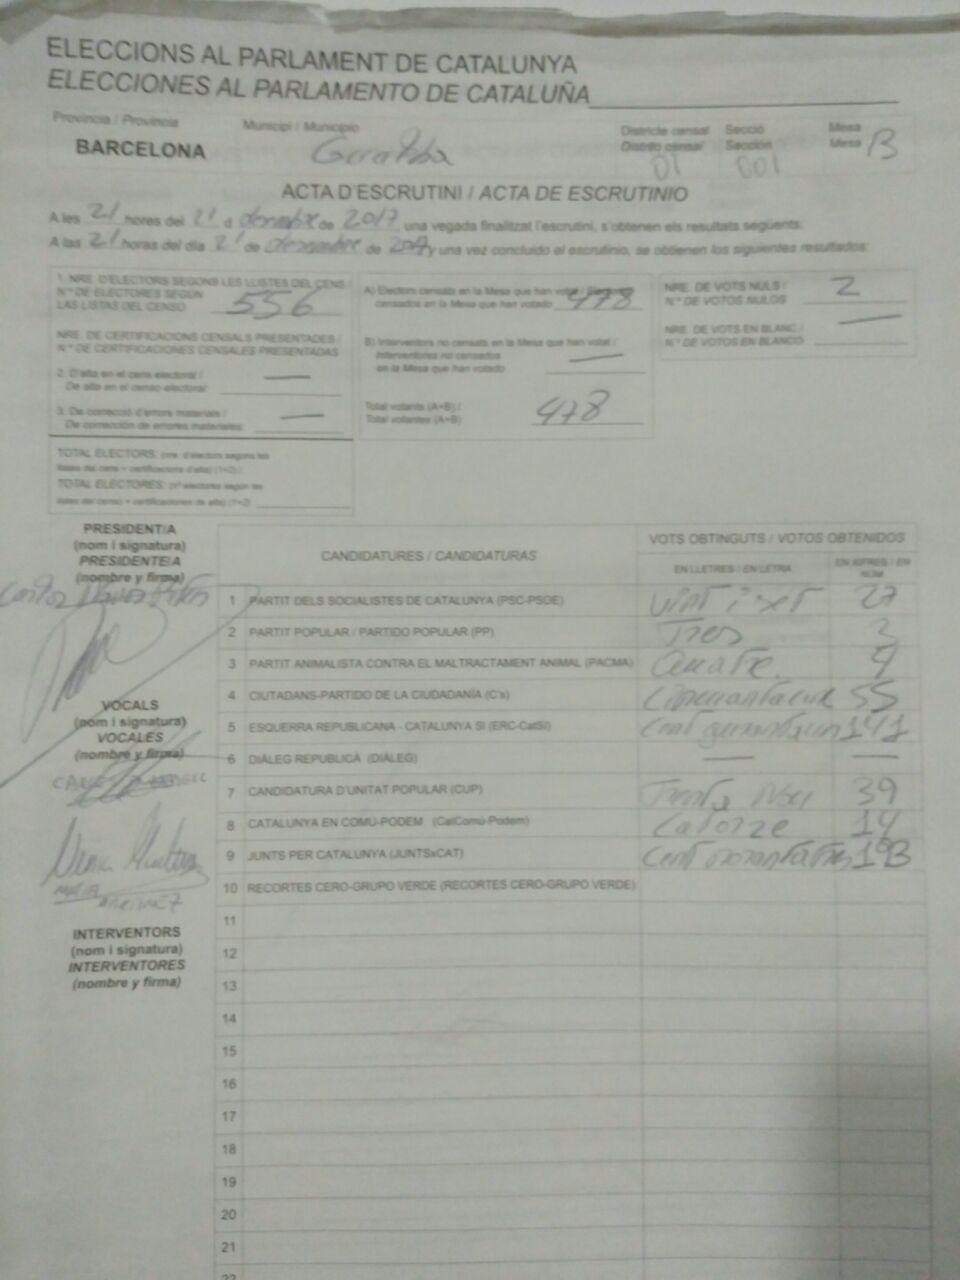 ELECCIONS AL PARLAMENT DE CATALUNYA
ELECCIONES AL PARLAMENTO DE CATALUÑA
Província / Provincia
BARCELONA
Municipi / Municipio
Districte censal
Distrito censal
01
Secció
Sección
001
Mesa
Mesa B
ACTA D'ESCRUTINI / ACTA DE ESCRUTINIO
A les 21 hores del 21 d desembre de 2017 una vegada finalitzat l'escrutini, s'obtenen els resultats següents:
A las 21 horas del día 21 de desembre de 2017 y una vez concluido el escrutinio, se obtienen los siguientes resultados:
1. NRE. D'ELECTORS SEGONS LES LLISTES DEL CENS /
N.º DE ELECTORES SEGÚN
LAS LISTAS DEL CENSO 556
NRE. DE CERTIFICACIONS CENSALS PRESENTADES /
N.º DE CERTIFICACIONES CENSALES PRESENTADAS
2. D'alta en el cens electoral /
De alta en el censo electoral: —
3. De correcció d'errors materials /
De corrección de errores materiales: —
TOTAL ELECTORS: (nre. d'electors segons les
llistes del cens + certificacions d'alta) (1+2) /
TOTAL ELECTORES: (nº electores según las
listas del censo + certificaciones de alta) (1+2)
A) Electors censats en la Mesa que han votat /
censados en la Mesa que han votado 478
B) Interventors no censats en la Mesa que han votat /
Interventores no censados
en la Mesa que han votado —
Total votants (A+B) /
Total votantes (A+B) 478
NRE. DE VOTS NULS /
N.º DE VOTOS NULOS 2
NRE. DE VOTS EN BLANC /
N.º DE VOTOS EN BLANCO —
PRESIDENT/A
(nom i signatura)
PRESIDENTE/A
(nombre y firma)
VOCALS
(nom i signatura)
VOCALES
(nombre y firma)
INTERVENTORS
(nom i signatura)
INTERVENTORES
(nombre y firma)
CANDIDATURES / CANDIDATURAS
VOTS OBTINGUTS / VOTOS OBTENIDOS
EN LLETRES / EN LETRA
EN XIFRES / EN NÚM.
1 PARTIT DELS SOCIALISTES DE CATALUNYA (PSC-PSOE) vint i set 27
2 PARTIT POPULAR / PARTIDO POPULAR (PP) Tres 3
3 PARTIT ANIMALISTA CONTRA EL MALTRACTAMENT ANIMAL (PACMA) Quatre 4
4 CIUTADANS-PARTIDO DE LA CIUDADANÍA (C's) 55
5 ESQUERRA REPUBLICANA - CATALUNYA SÍ (ERC-CatSí) 141
6 DIÀLEG REPUBLICÀ (DIÀLEG) — —
7 CANDIDATURA D'UNITAT POPULAR (CUP) Trenta Nou 39
8 CATALUNYA EN COMÚ-PODEM (CatComú-Podem) Catorze 14
9 JUNTS PER CATALUNYA (JUNTSxCAT) 193
10 RECORTES CERO-GRUPO VERDE (RECORTES CERO-GRUPO VERDE)
11
12
13
14
15
16
17
18
19
20
21
22